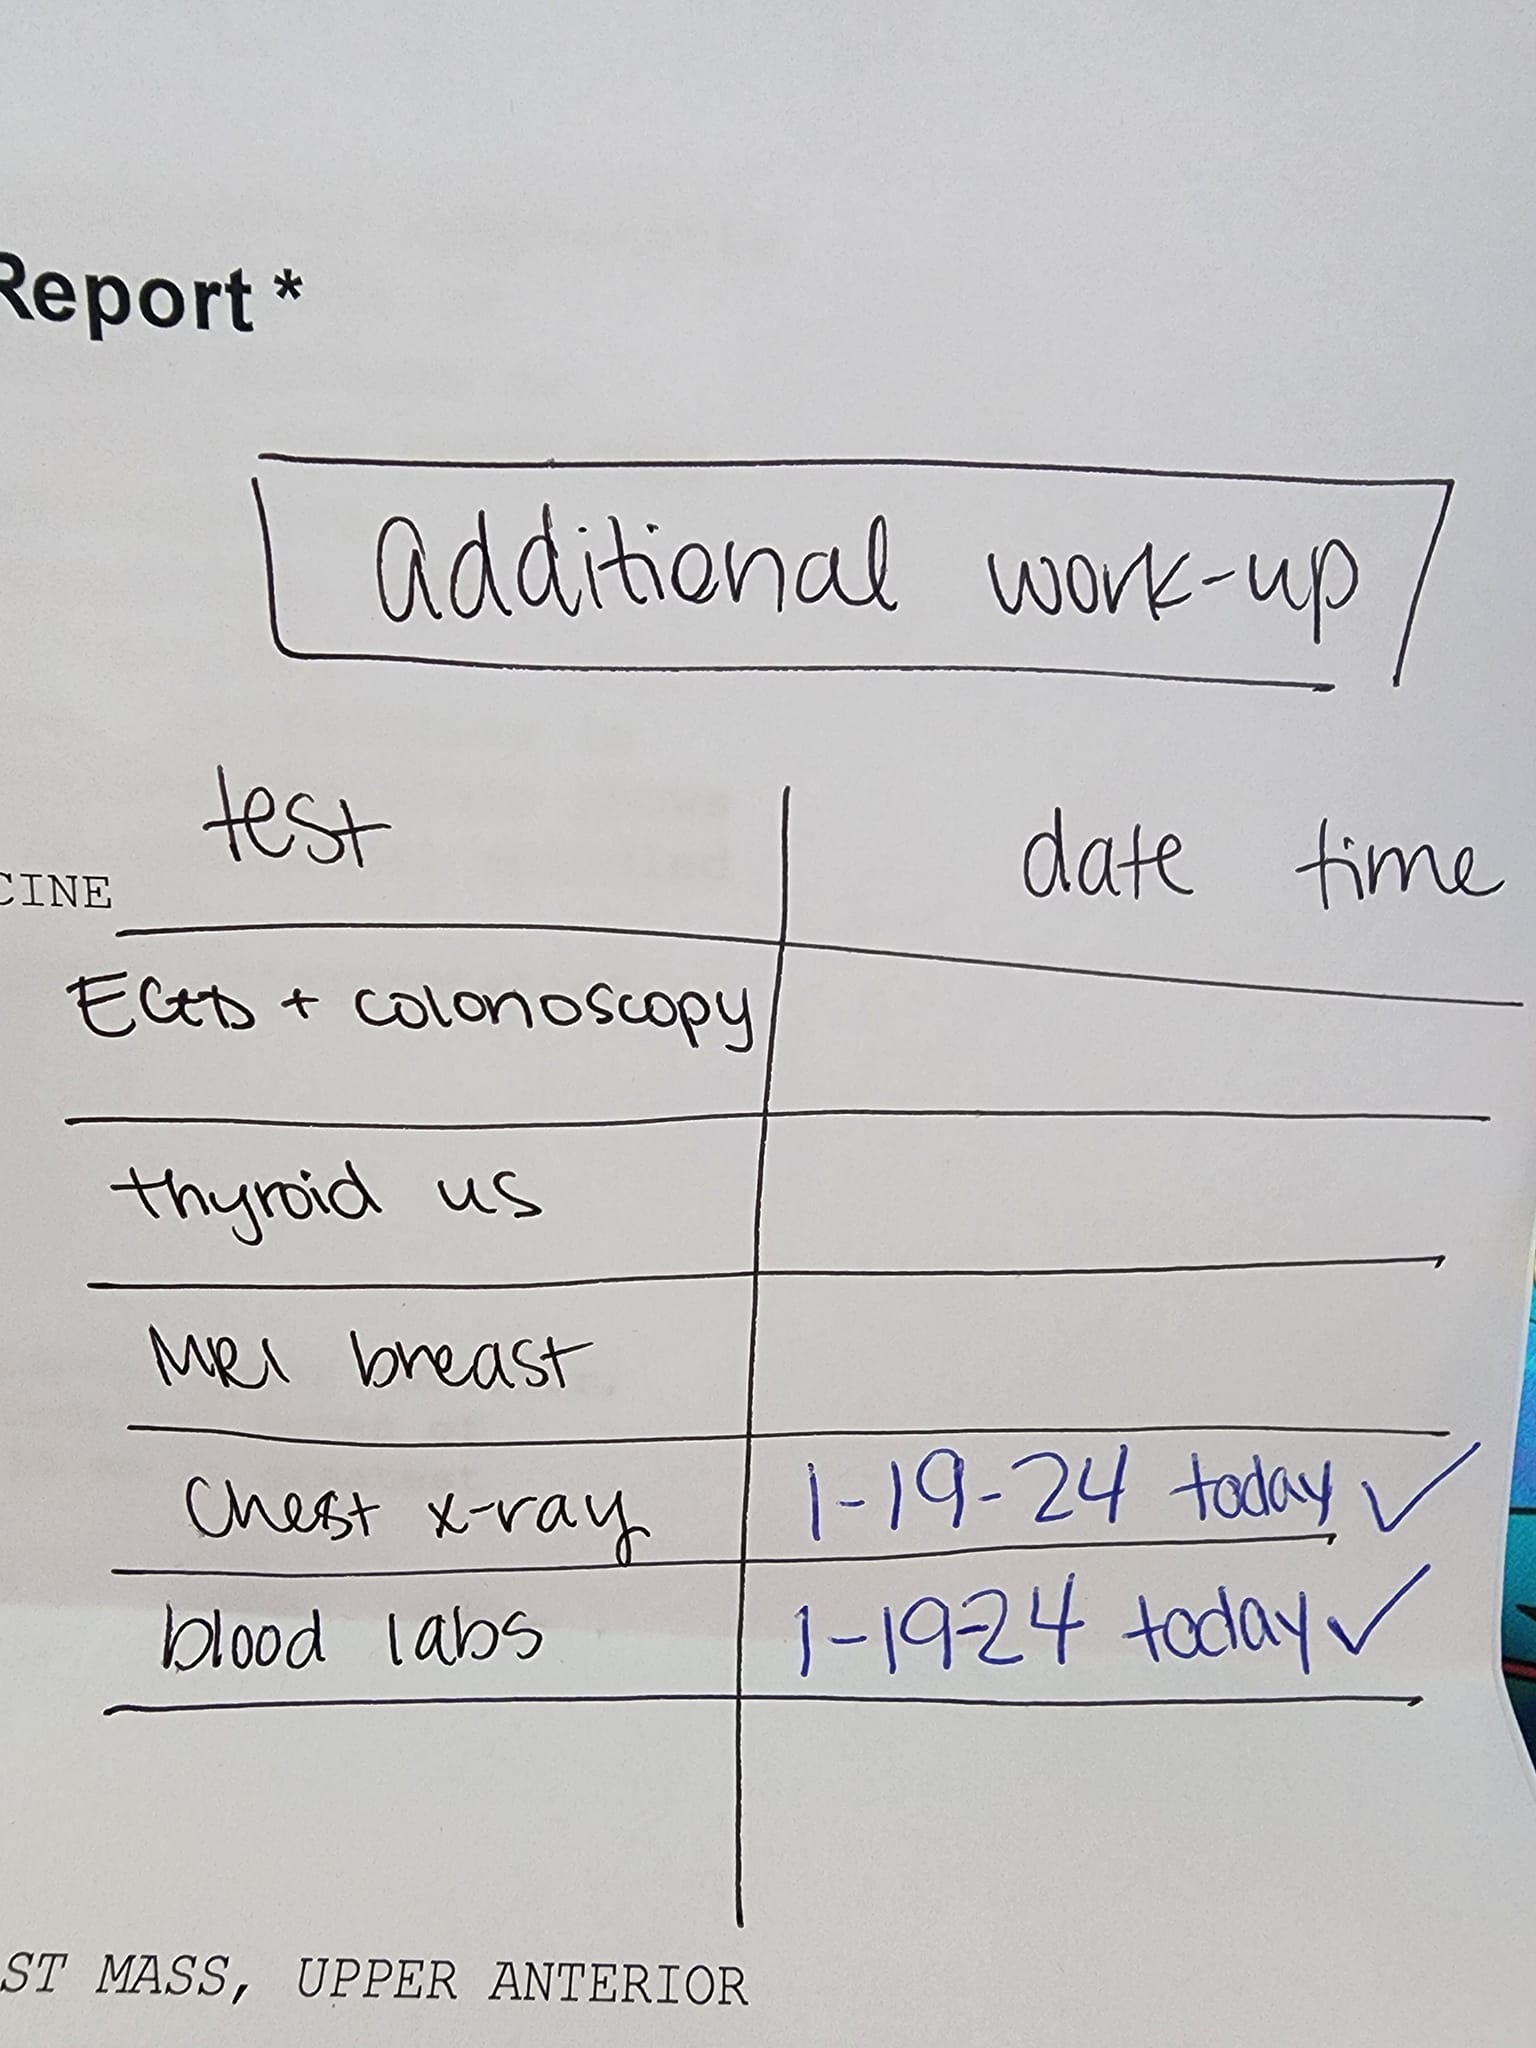 Report *
additional work-up
test date time
CINE
EGD + colonoscopy
thyroid us
MRI breast
Chest x-ray 1-19-24 today ✓
blood labs 1-19-24 today ✓
ST MASS, UPPER ANTERIOR